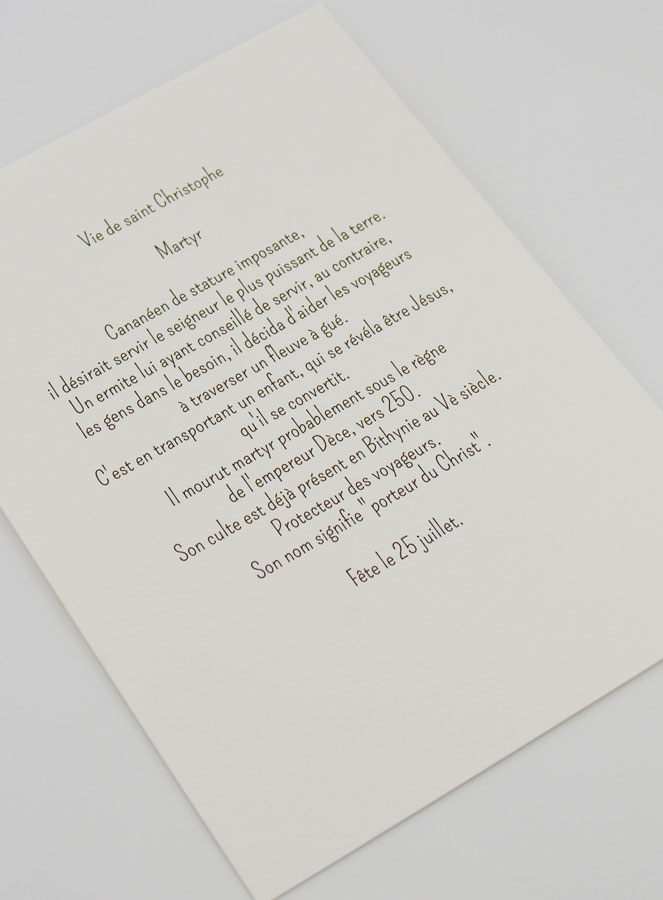 Vie de saint Christophe
Martyr
Cananéen de stature imposante,
il désirait servir le seigneur le plus puissant de la terre.
Un ermite lui ayant conseillé de servir, au contraire,
les gens dans le besoin, il décida d'aider les voyageurs
à traverser un fleuve à gué.
C'est en transportant un enfant, qui se révéla être Jésus,
qu'il se convertit.
Il mourut martyr probablement sous le règne
de l'empereur Dàce, vers 250.
Son culte est déjà présent en Bithynie au Vè siècle.
Protecteur des voyageurs.
Son nom signifie" porteur du Christ".
Fête le 25 juillet.